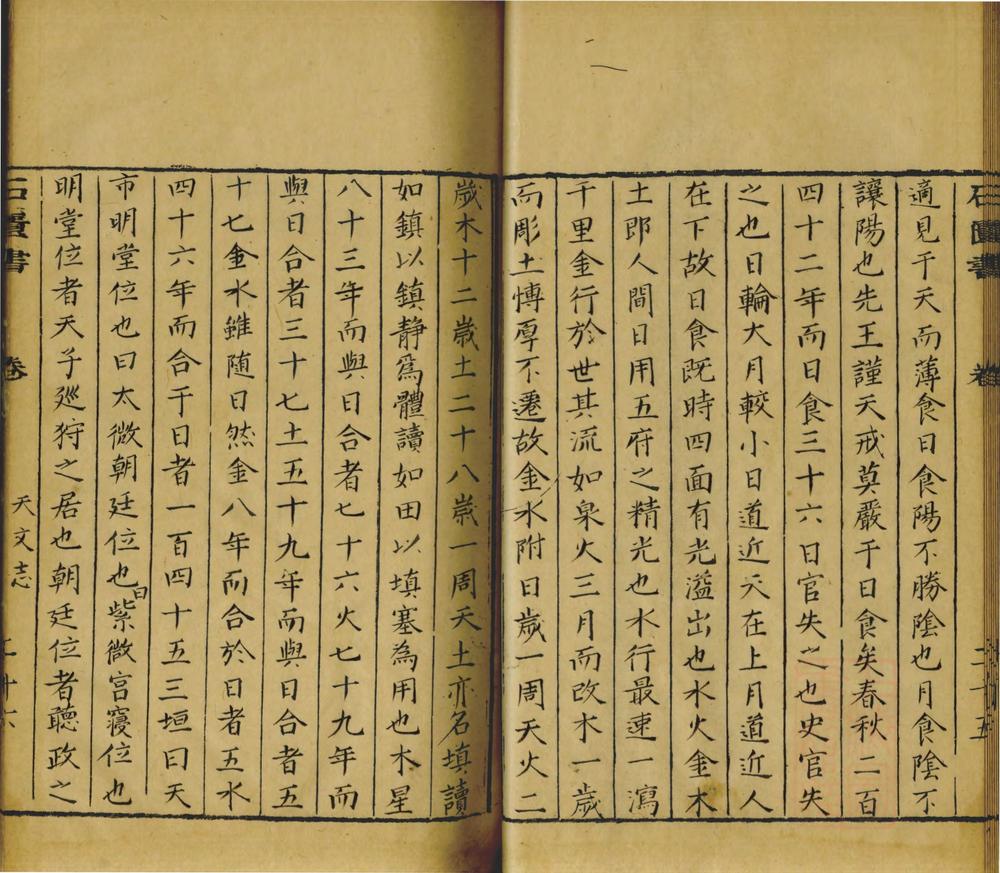 石匱書 卷 二十五
適見于天而薄食日食陽不勝陰也月食陰不
讓陽也先王謹天戒莫嚴于日食矣春秋二百
四十二年而日食三十六日官失之也史官失
之也日輪大月較小日道近天在上月道近人
在下故日食既時四面有光溢出也水火金木
土即人間日用五府之精光也水行最速一瀉
千里金行於世其流如泉火三月而改木一歲
而彫土慱厚不遷故金水附日歲一周天火二
歲木十二歲土二十八歲一周天土亦名填讀
如鎮以鎮静爲體讀如田以填塞為用也木星
八十三年而與日合者七十六火七十九年而
與日合者三十七土五十九年而與日合者五
十七金水雖随日然金八年而合於日者五水
四十六年而合于日者一百四十五三垣曰天
市明堂位也曰太微朝廷位也曰紫微宫寢位也
明堂位者天子廵狩之居也朝廷位者聽政之
石匱書 卷 天文志 二十六